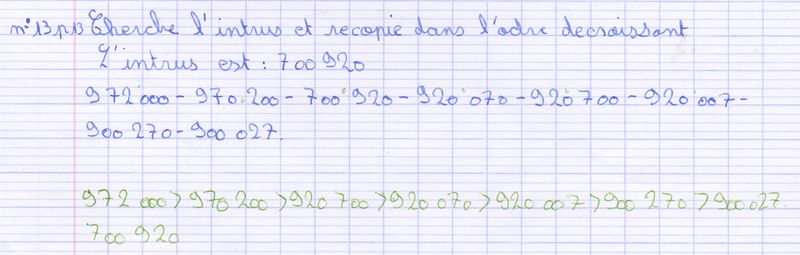 n° 13 p 13 Cherche l'intrus et recopie dans l'odre decroissant
L'intrus est : 700 920
972 000 - 970 200 - 700 920 - 920 070 - 920 700 - 920 007 -
900 270 - 900 027.
972 000 > 970 200 > 920 700 > 920 070 > 920 007 > 900 270 > 900 027.
700 920